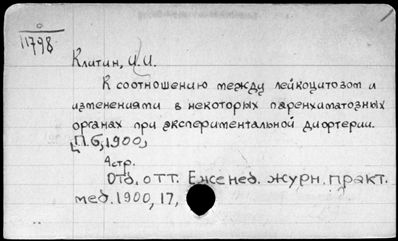 0
11798
Клитин, И.И.
К соотношению между лейкоцитозом и
изменениями в некоторых паренхиматозных
органах при экспериментальной дифтерии.
[П.б, 1900,]
4 стр.
Отд. отт. Еженед. журн. практ.
мед. 1900, 17,